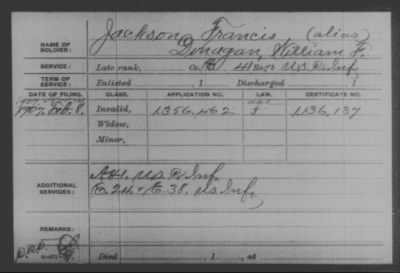 Jackson, Francis (alias)
NAME OF SOLDIER: Donagan, William F.
SERVICE: Late rank, Co. G, 41 Reg't U.S.C. Inf.
TERM OF SERVICE: Enlisted , 1 Discharged , 1
DATE OF FILING. CLASS. APPLICATION NO. LAW. CERTIFICATE NO.
1907, Feb. 8, Invalid, 1356,462 1136,137
Widow,
Minor,
ADDITIONAL SERVICES: A 41, U.S. C. Inf.
G. 24 & E. 38, U.S. Inf.
REMARKS:
Died , 1 , at